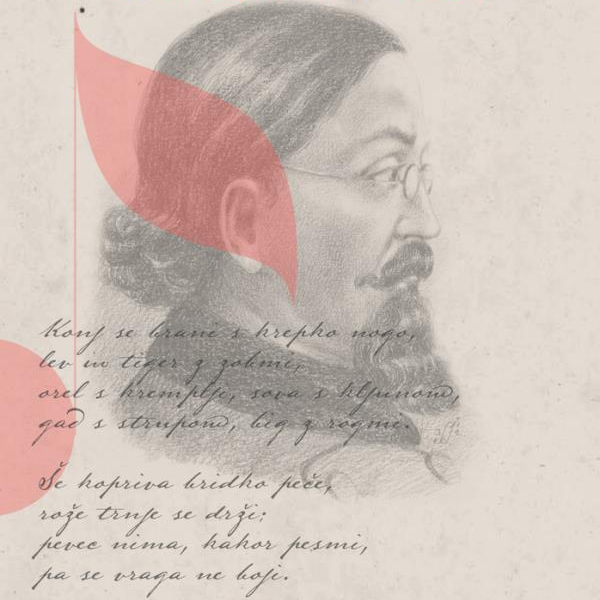 Konj se brani s krepko nogo,
lev in tiger z zobmi,
orel s kremplje, sova s kljunom,
gad s strupom, big z rogmi.
Še kopriva bridko peče,
rože trnje se drži;
pevec nima, kakor pesmi,
pa se vraga ne boji.